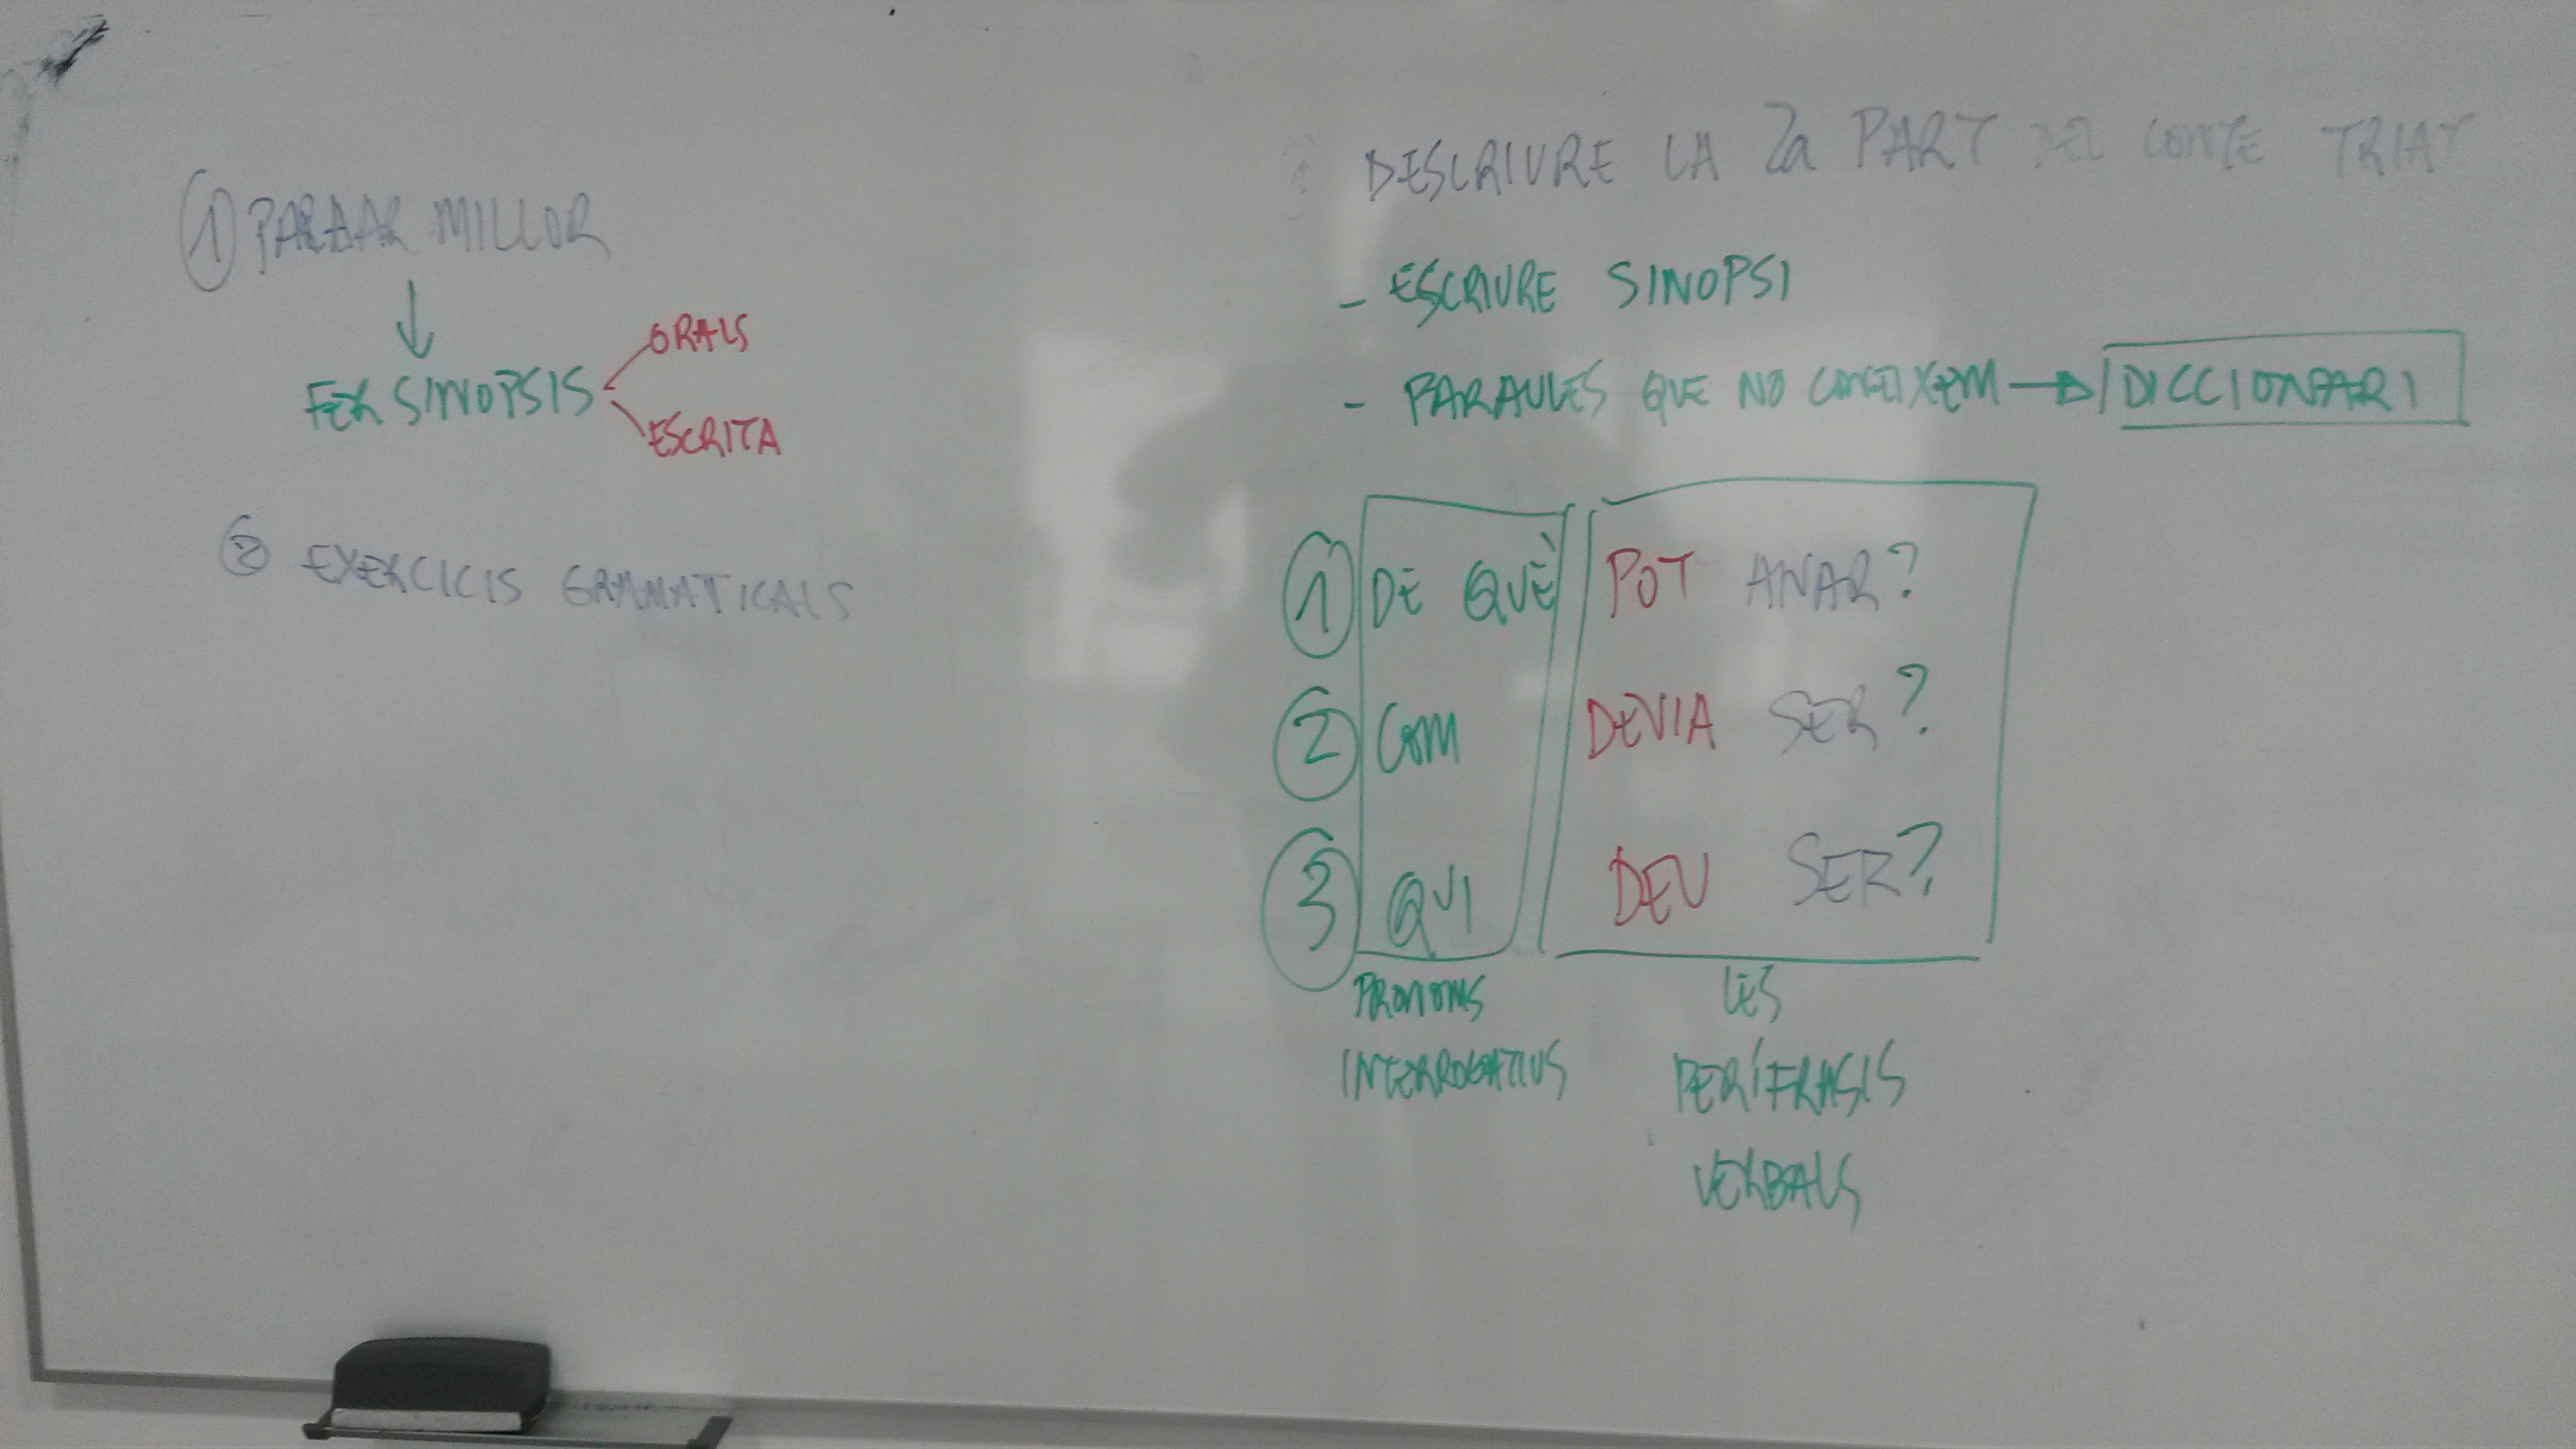 ① PARLAR MILLOR
↓
FER SINOPSIS
ORALS
ESCRITA
② EXERCICIS GRAMATICALS
DESCRIURE LA 2a PART DEL CONTE TRIAT
- ESCRIURE SINOPSI
- PARAULES QUE NO CONEIXEM → DICCIONARI
① DE QUÈ POT ANAR?
② COM DEVIA SER?
③ QUI DEU SER?
PRONOMS
INTERROGATIUS
LES
PERÍFRASIS
VERBALS